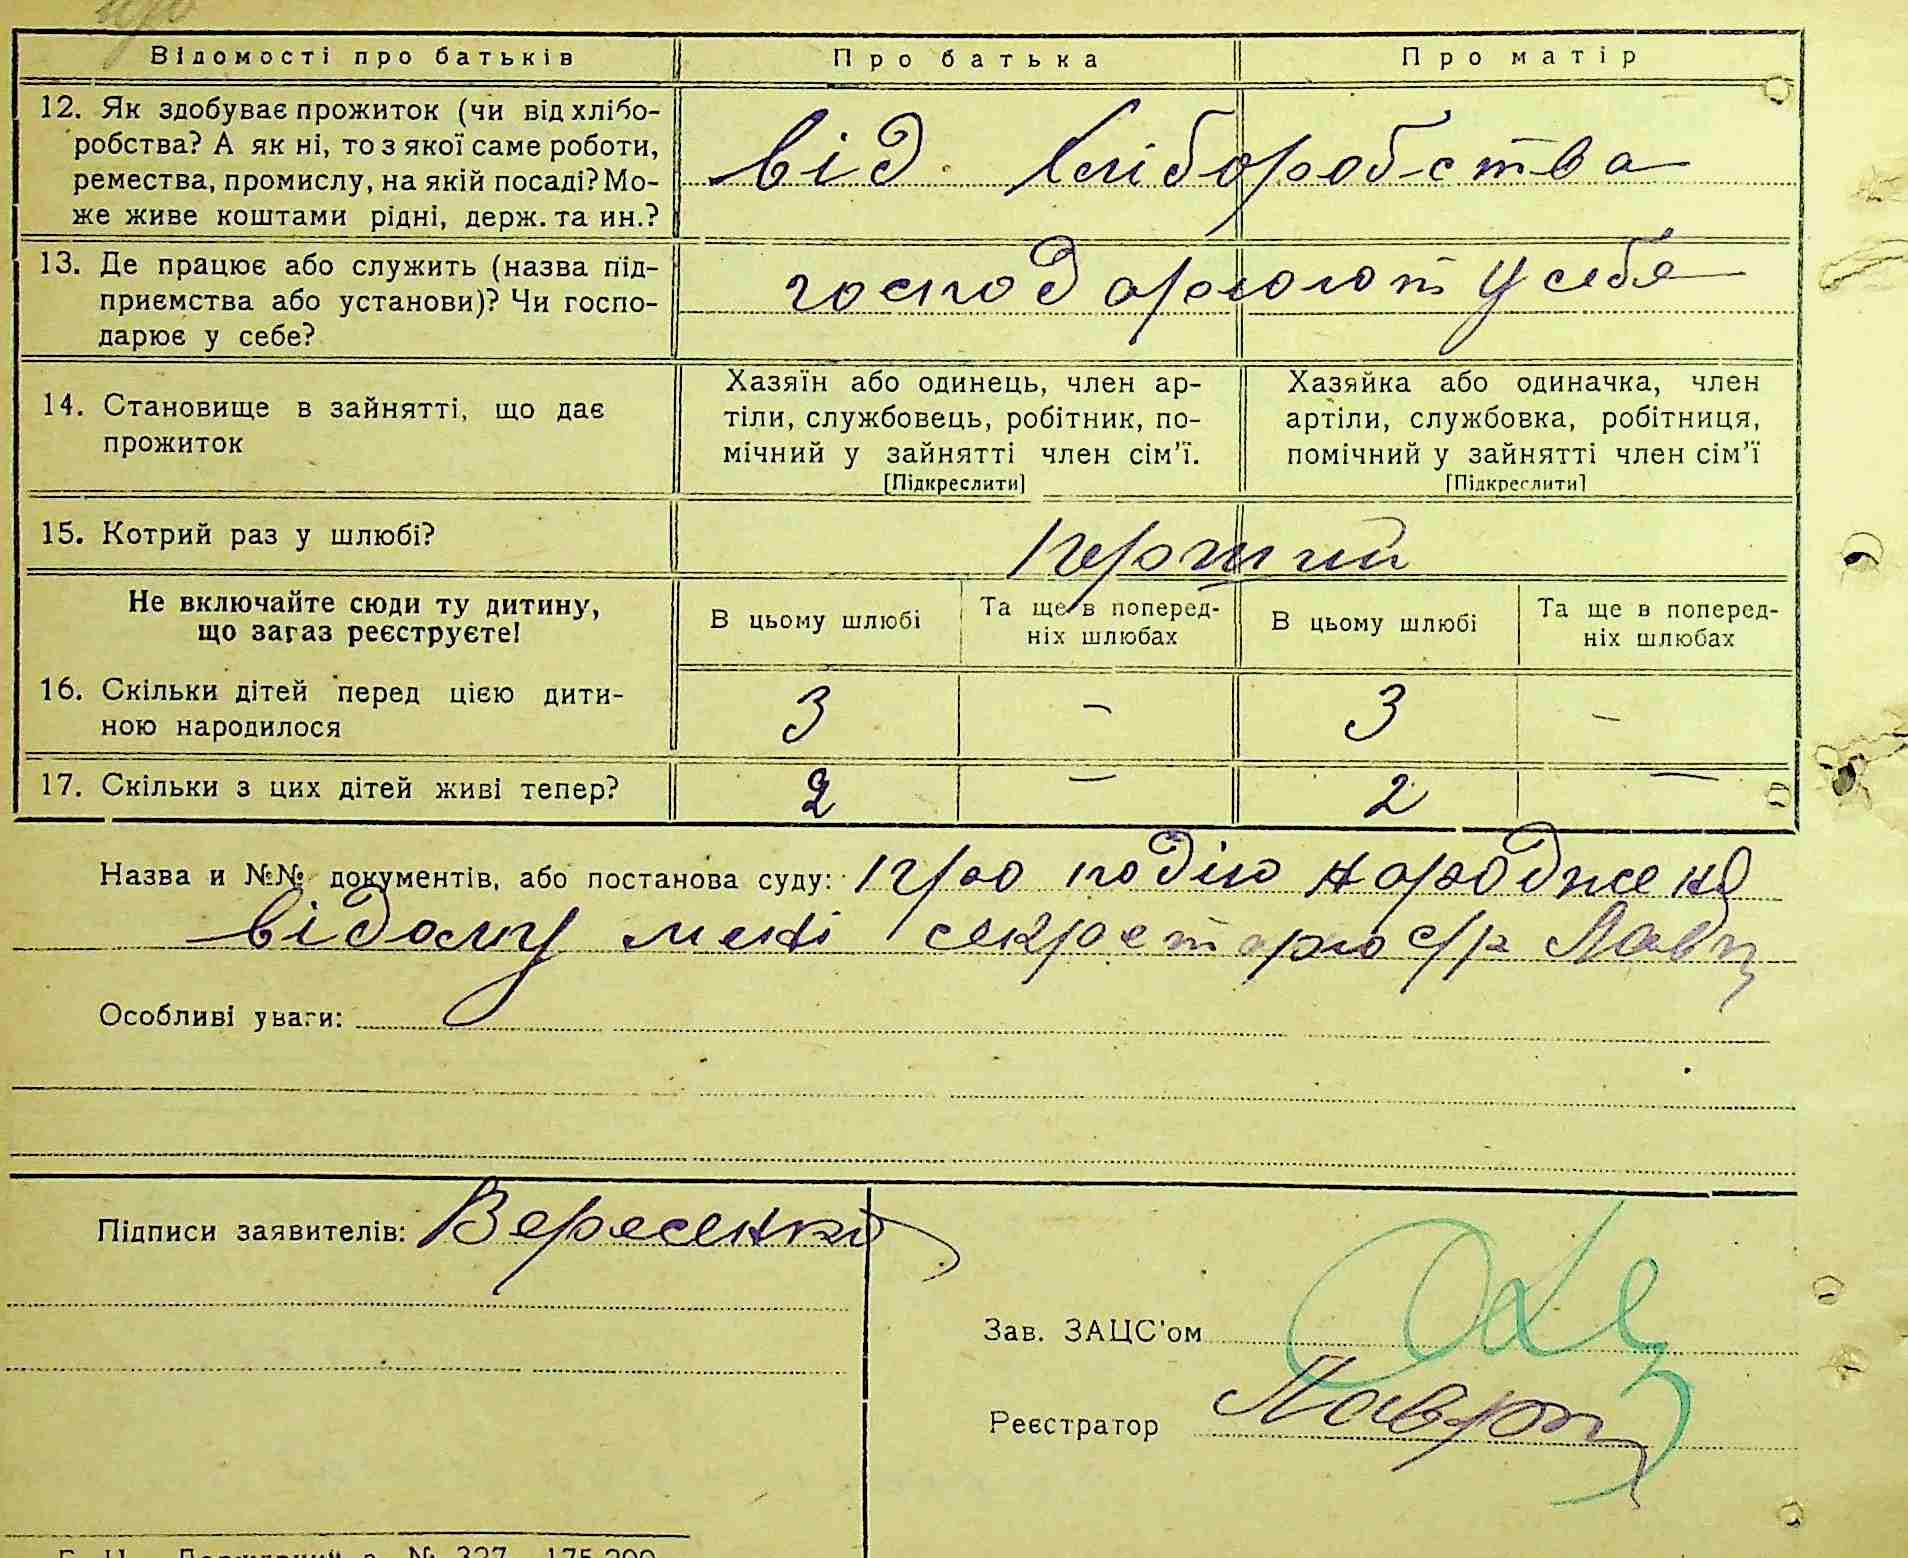 Відомості про батьків Про батька Про матір
12. Як здобуває прожиток (чи від хлібо-
робства? А як ні, то з якої саме роботи,
ремества, промислу, на якій посаді? Мо-
же живе коштами рідні, держ. та ин.?
від хліборобства
13. Де працює або служить (назва під-
приємства або установи)? Чи госпо-
дарює у себе?
господарюют у себя
14. Становище в зайнятті, що дає
прожиток
Хазяїн або одинець, член ар-
тіли, службовець, робітник, по-
мічний у зайнятті член сім'ї.
[Підкреслити]
Хазяйка або одиначка, член
артіли, службовка, робітниця,
помічний у зайнятті член сім'ї
[Підкреслити]
15. Котрий раз у шлюбі?
Не включайте сюди ту дитину,
що загаз реєструєте!
В цьому шлюбі
Та ще в поперед-
ніх шлюбах
В цьому шлюбі
Та ще в поперед-
ніх шлюбах
16. Скільки дітей перед цією дити-
ною народилося
3 – 3 –
17. Скільки з цих дітей живі тепер?
2 – 2 –
Назва и №№ документів, або постанова суду: про подію народженя
відому мені секретарю с/р
Особливі уваги:
Підписи заявителів: Вересенко
Зав. ЗАЦС'ом
Реєстратор